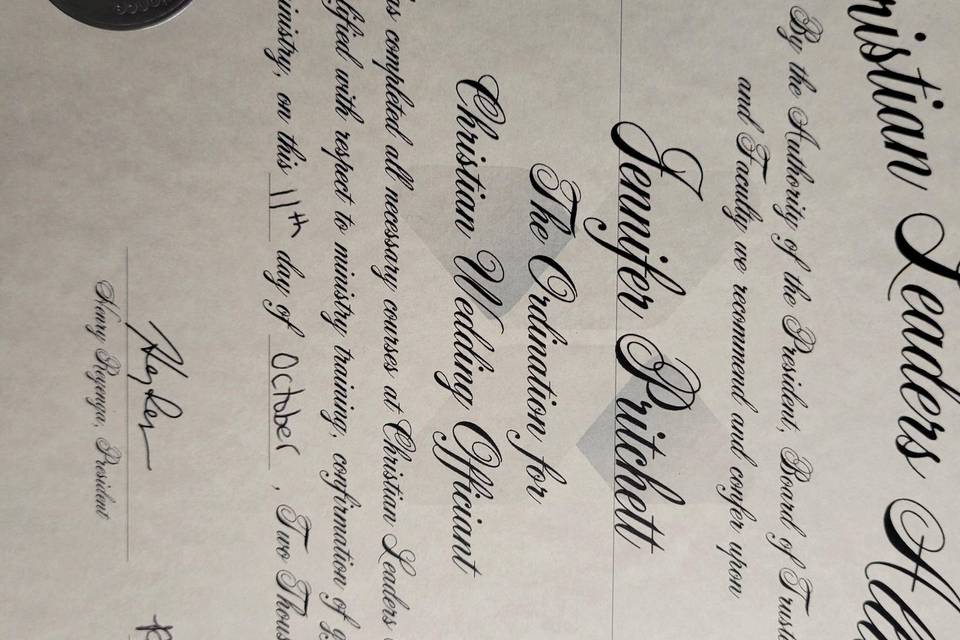 Christian Leaders All
By the Authority of the President, Board of Trust
and Faculty we recommend and confer upon
Jennifer Pritchett
The Ordination for
Christian Wedding Officiant
as completed all necessary courses at Christian Leaders
lified with respect to ministry training, confirmation of g
inistry, on this 11th day of October, Two Thous
Henry Reyenga, President